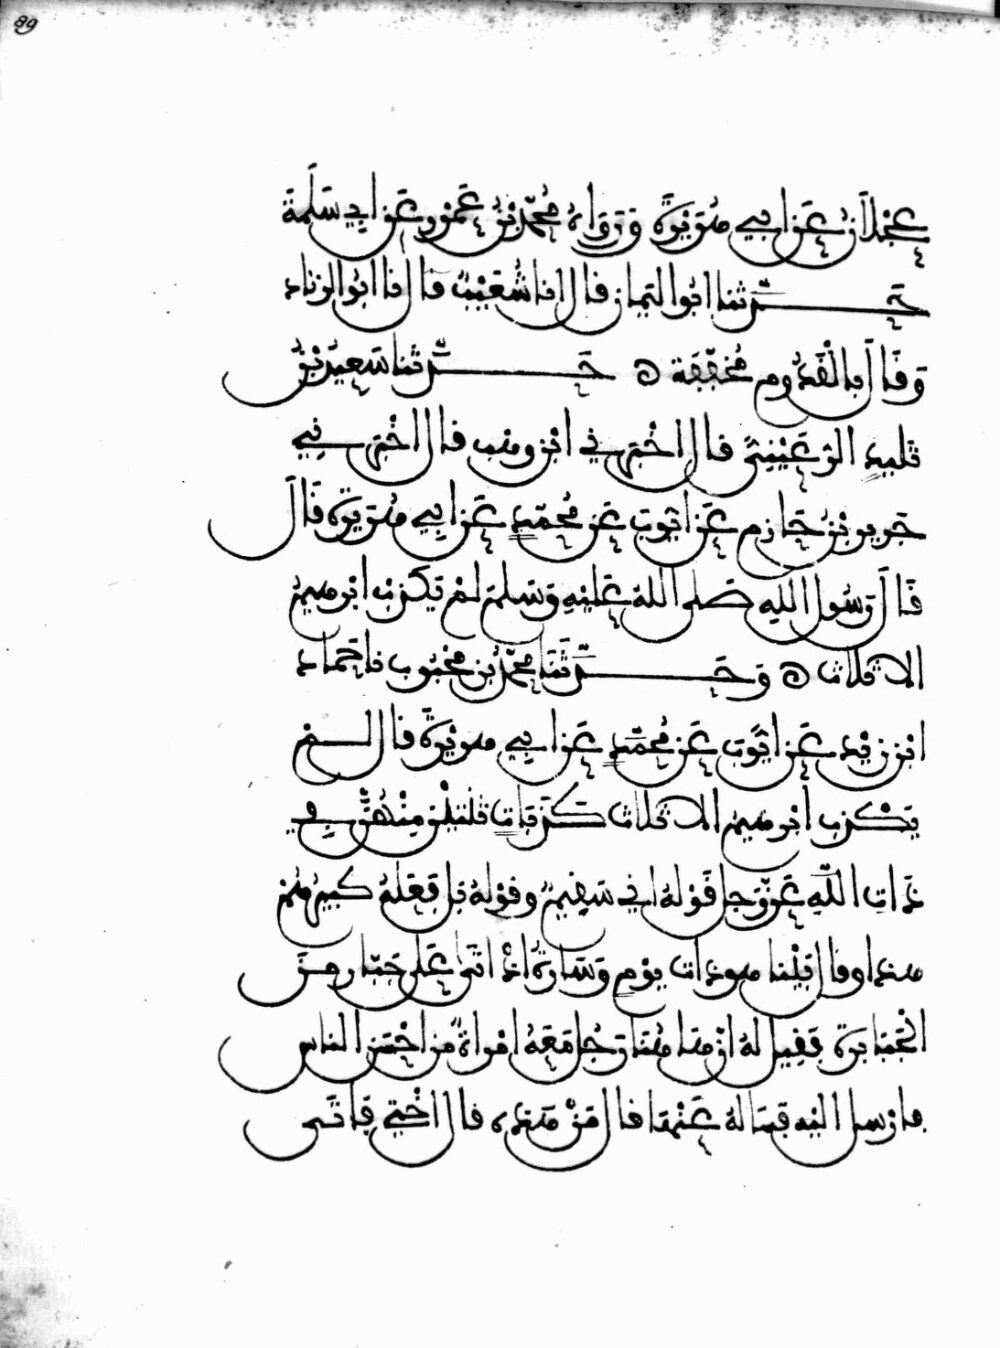 89
عجلان عن ابي هريرة ورواه محمد بن عمرو عن ابي سلمة
حدثنا ابو اليمان قال انا شعيب قال انا ابو الزناد
وقال بالقدوم مخففة ه حدثنا سعيد بن
تليد الرعيني قال اخبرني ابن وهب قال اخبرني
جرير بن حازم عن ايوب عن محمد عن ابي هريرة قال
قال رسول الله صلى الله عليه وسلم لم يكذب ابرهيم
الا ثلاث ه وحدثنا محمد بن محبوب نا حماد
ابن زيد عن ايوب عن محمد عن ابي هريرة قال لم
يكذب ابرهيم الا ثلاث كذبات ثنتين منهن في
ذات الله عز وجل قوله اني سقيم وقوله بل فعله كبيرهم
هذا وقال بينا هو ذات يوم وسارة اذ اتى على جبار من
الجبابرة فقيل له ان هاهنا رجل معه امراة من احسن الناس
فارسل اليه فساله عنها قال من هذه قال اختي فاتى